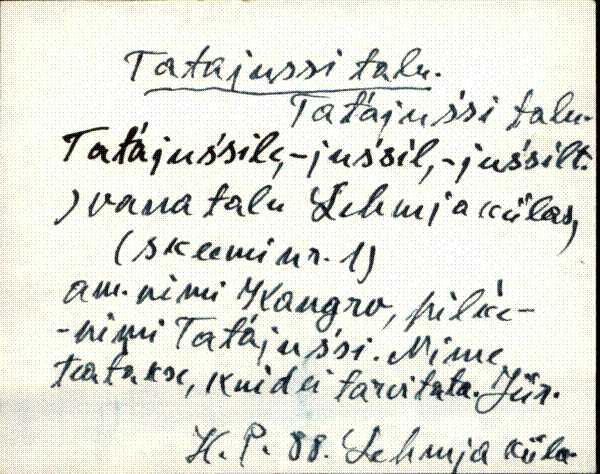 Tatajussi talu.
Tat́ajuśsi talu.
Tat́ajuśsile, -juśsil, -juśsilt.
) vana talu Lehmja külas,
(skeemi nr. 1)
am. nimi Kangro, pilke-
-nimi Tat́ajuśsi. Nime
teatakse, kuid ei tarvitata. Jür.
H. P. 88. Lehmja küla